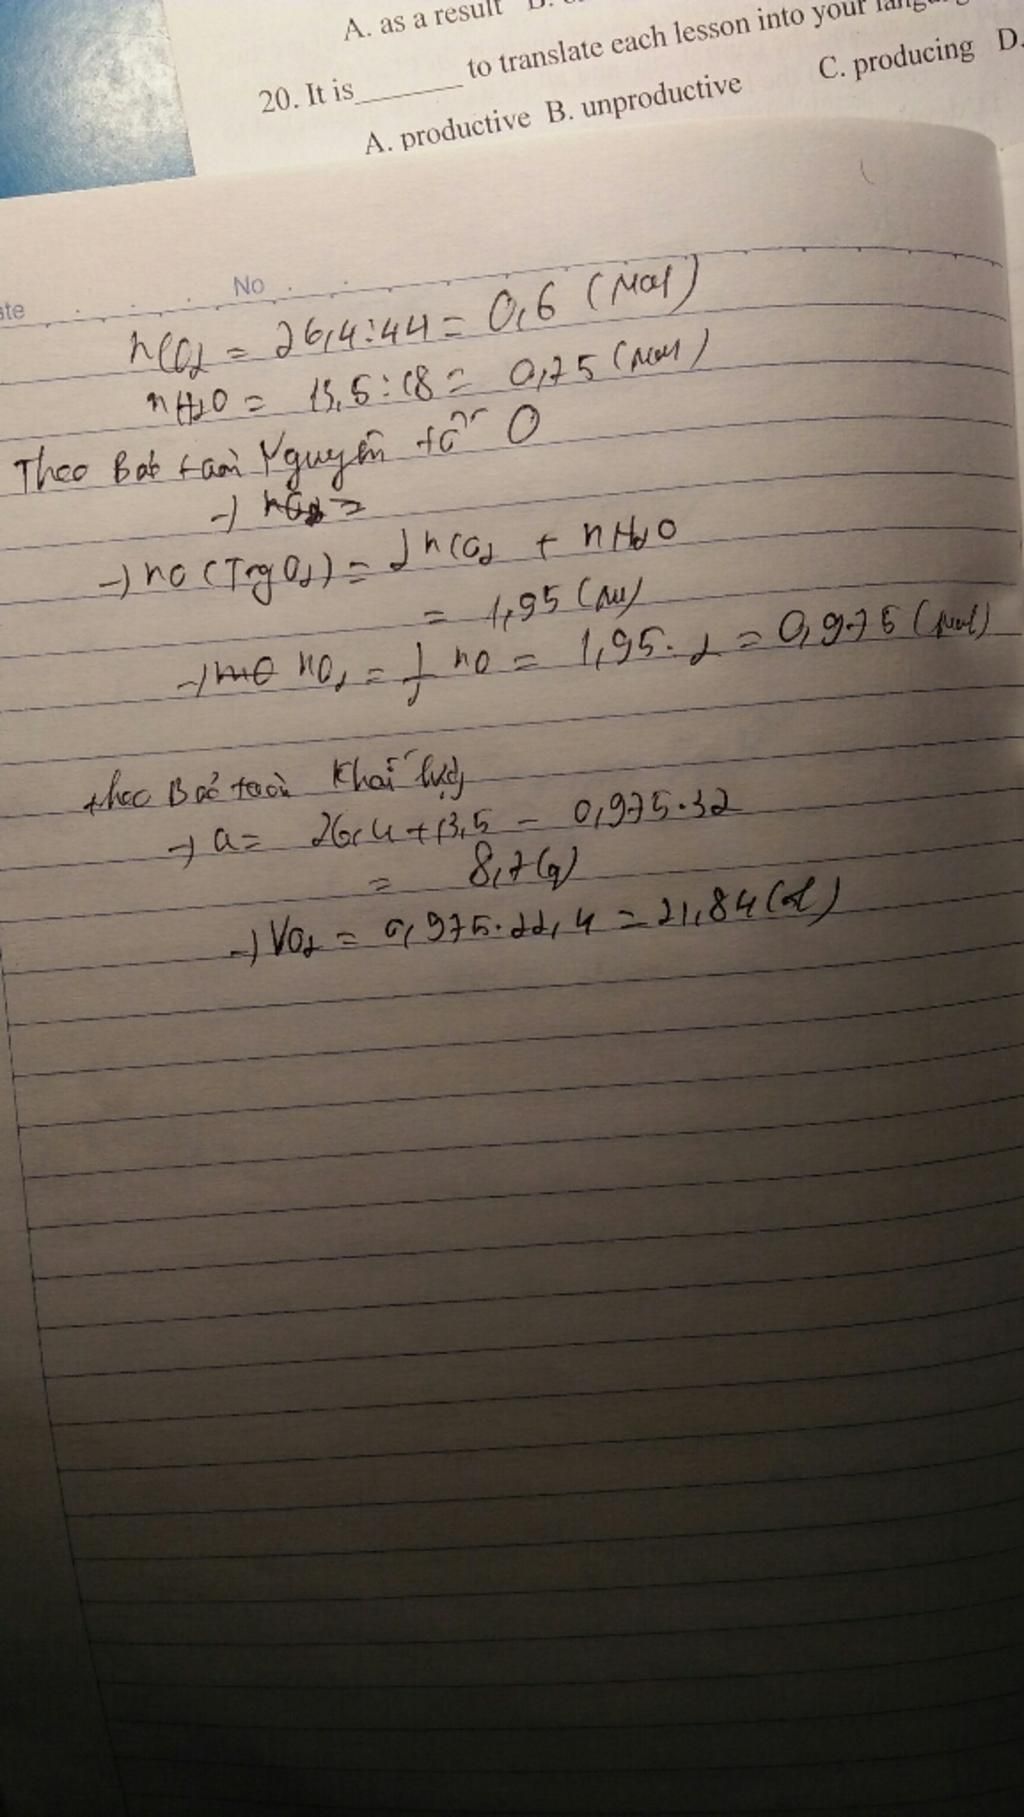 A. as a result
20. It is ______ to translate each lesson into your
A. productive B. unproductive C. producing D.
No
nCO2 = 26,4:44 = 0,6 (mol)
nH2O = 13,5:18 = 0,75 (mol)
Theo Bảo toàn Nguyên tố O
→ nO2 =
→ nO (Trg O2) = 2nCO2 + nH2O
= 1,95 (mol)
→ mO nO2 = 1/2 nO = 1,95.2 = 0,975 (mol)
theo Bảo toàn Khối lượng
→ a = 26,4 + 13,5 - 0,975.32
= 8,7(g)
→ VO2 = 0,975.22,4 = 21,84 (l)